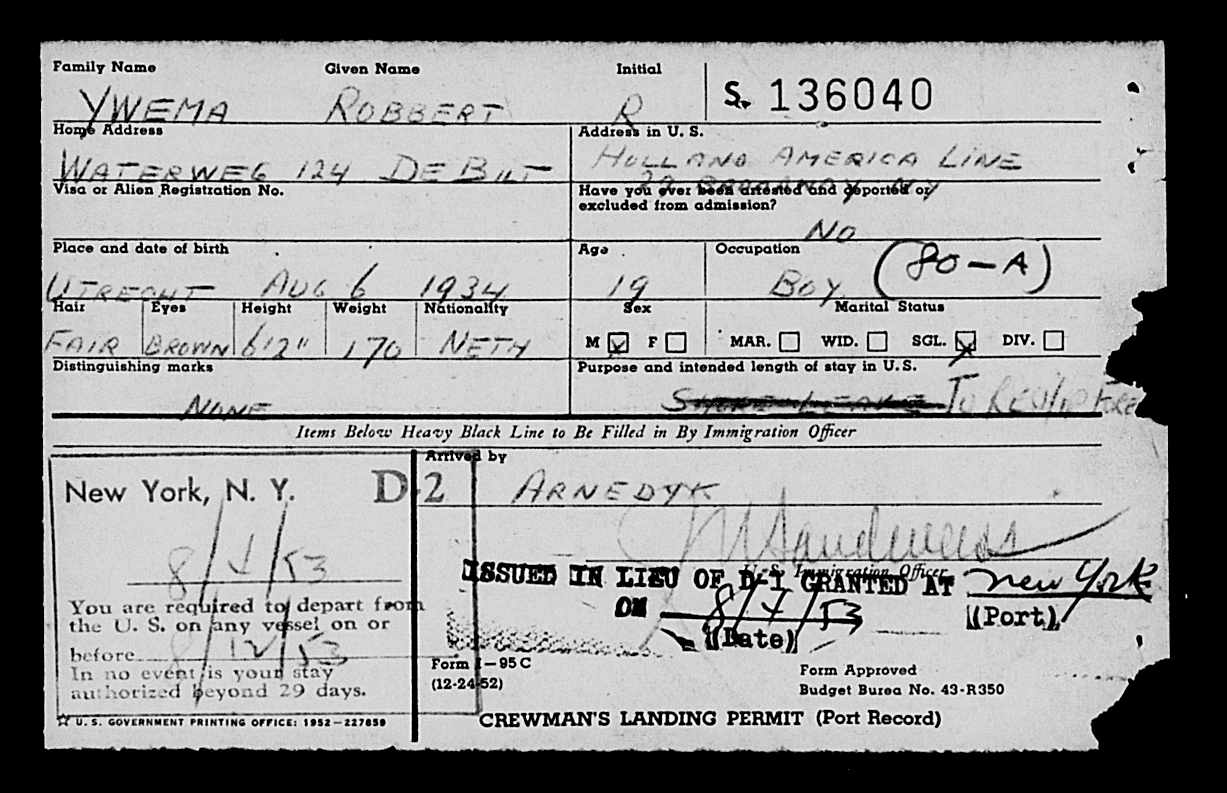 Family Name Given Name Initial
YWEMA ROBBERT R S. 136040
Home Address Address in U. S.
WATERWEG 124 DE BILT HOLLAND AMERICA LINE
29 BROADWAY NY
Visa or Alien Registration No. Have you ever been arrested and deported or
excluded from admission?
NO
Place and date of birth Age Occupation
UTRECHT AUG 6 1934 19 BOY (80-A)
Hair Eyes Height Weight Nationality Sex Marital Status
FAIR BROWN 6'2" 170 NETH M F MAR. WID. SGL. DIV.
Distinguishing marks Purpose and intended length of stay in U. S.
NONE SHORE LEAVE TO RESHIP FORE
Items Below Heavy Black Line to Be Filled in By Immigration Officer
Arrived by
New York, N. Y. D-2 ARNEDYK
8/4/53
U. S. Immigration Officer
ISSUED IN LIEU OF D-1 GRANTED AT New York
ON 8/4/53 (Port)
(Date)
You are required to depart from
the U. S. on any vessel on or
before 8/12/53
In no event is your stay
authorized beyond 29 days.
Form I-95 C Form Approved
(12-24-52) Budget Burea No. 43-R350
☆ U. S. GOVERNMENT PRINTING OFFICE: 1952-227859
CREWMAN'S LANDING PERMIT (Port Record)